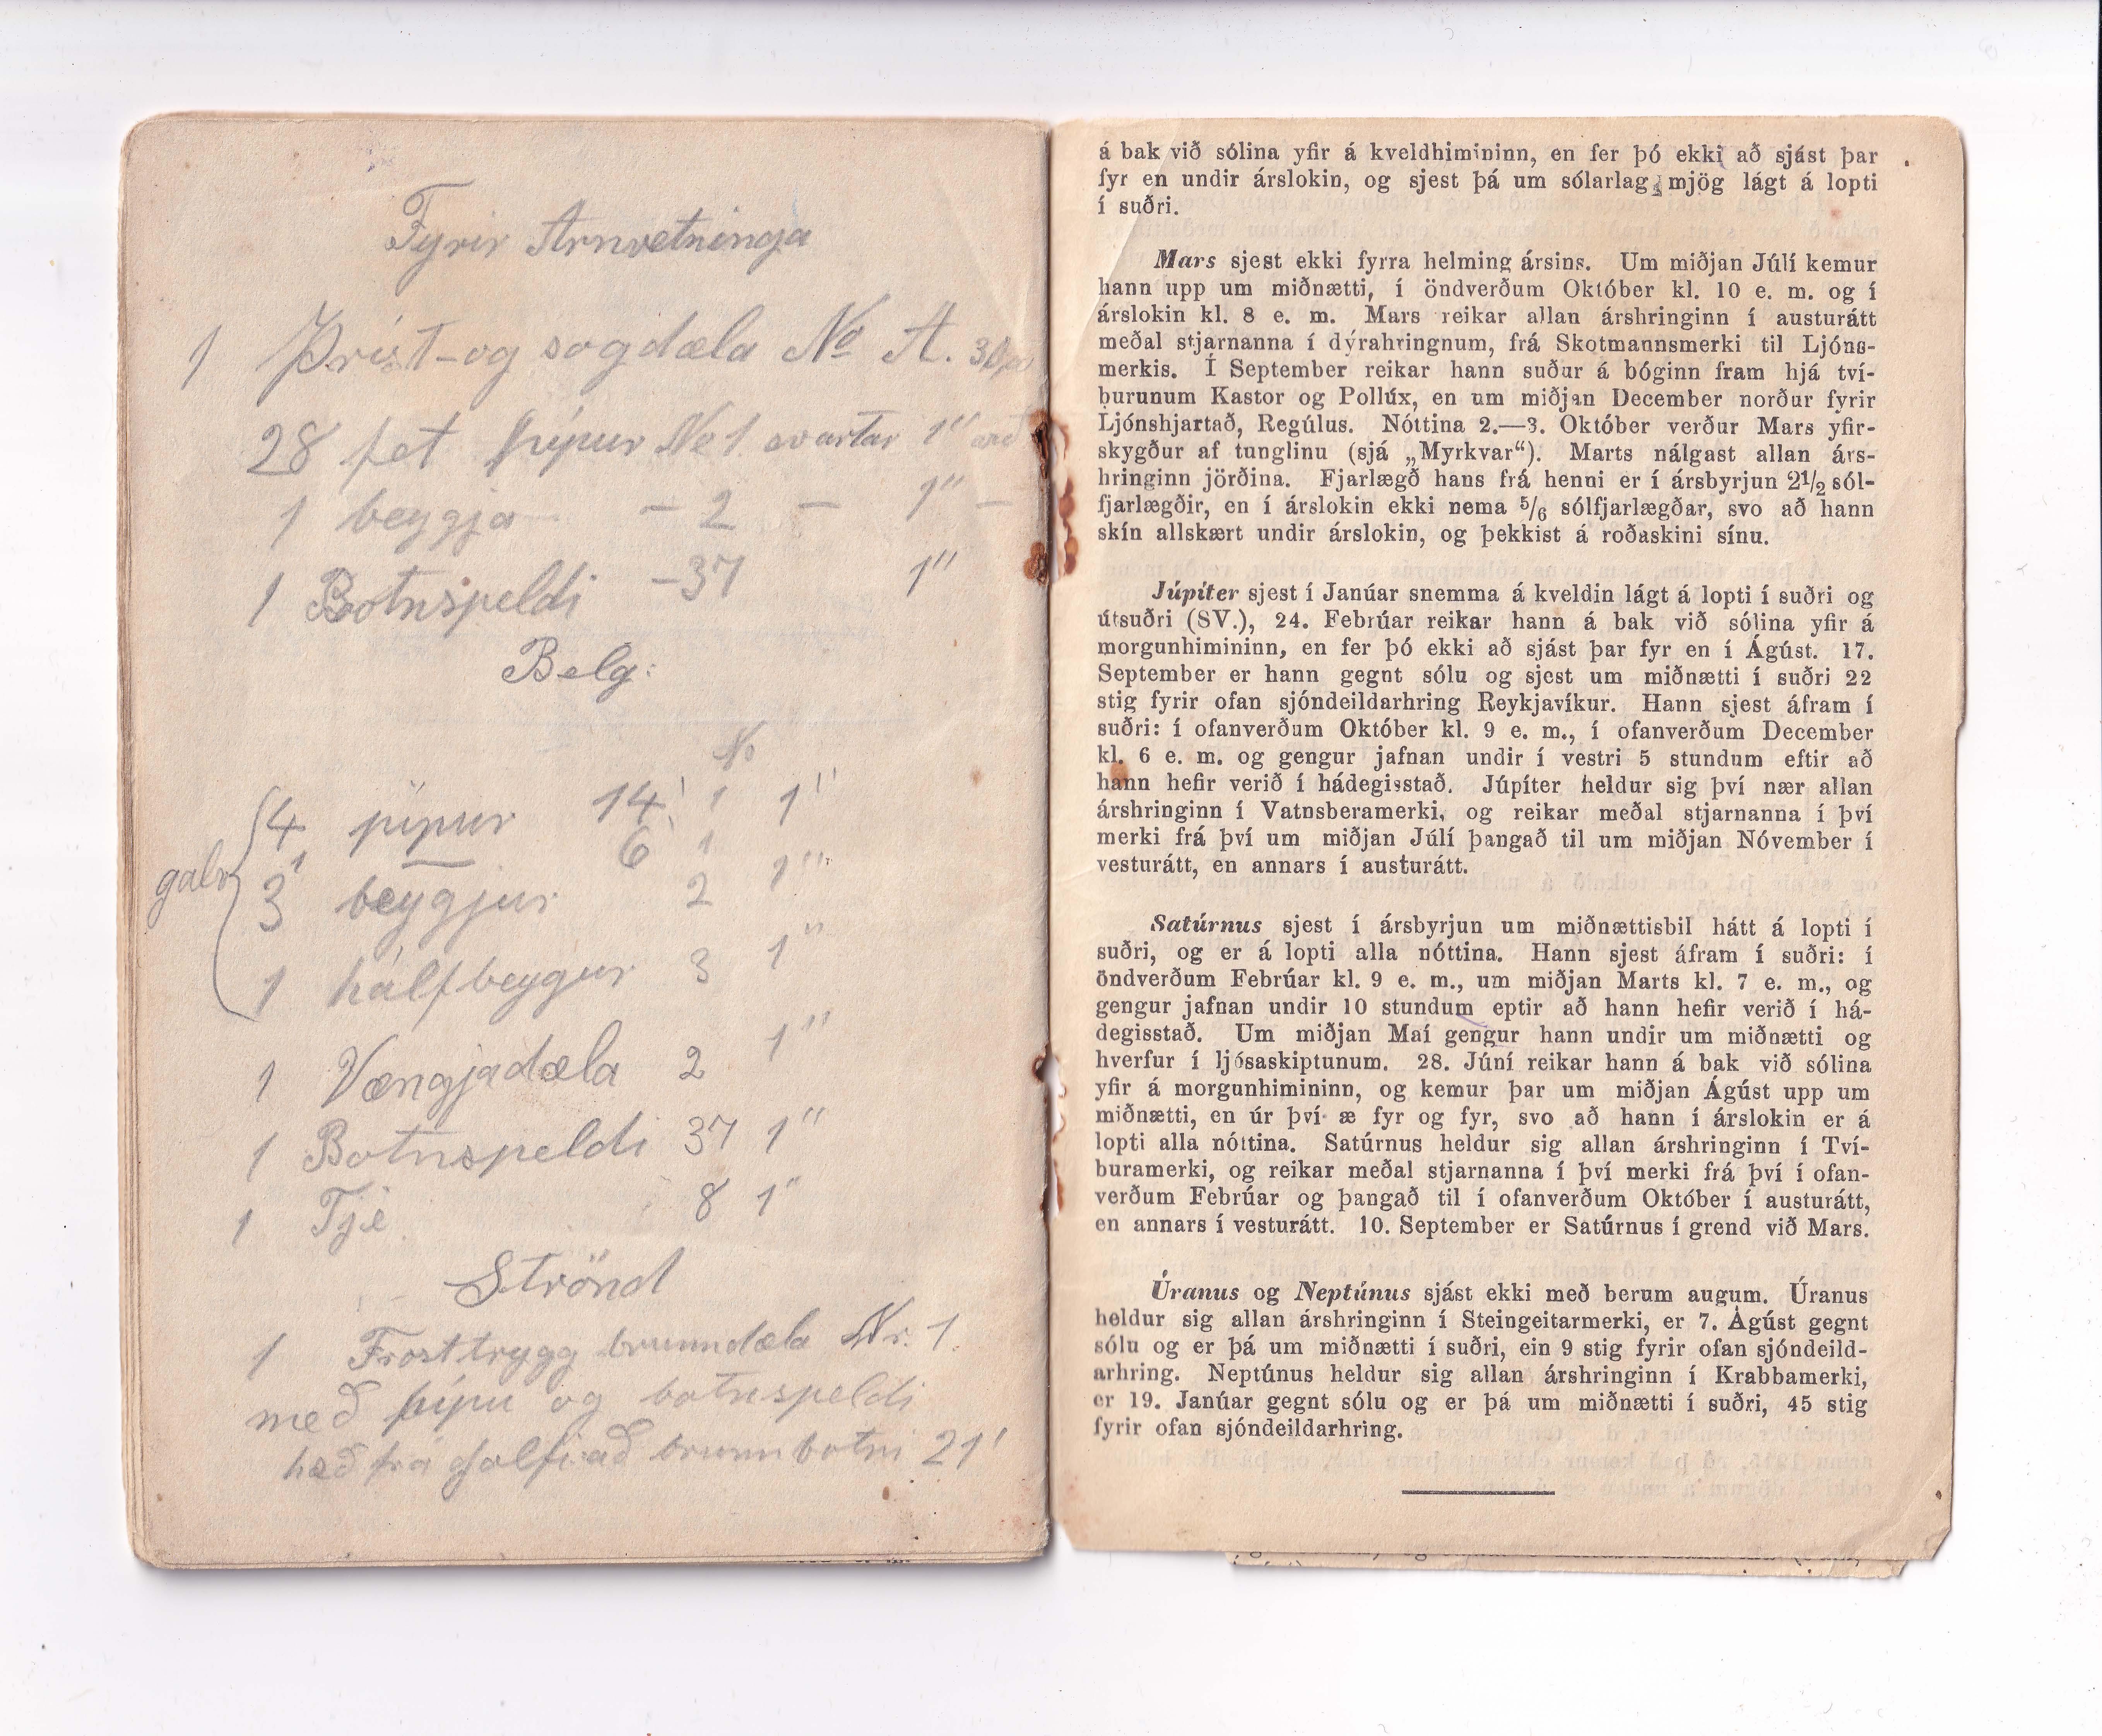 Fyrir Arnvetninga
1 Þrist-og sogdæla No A.
28 fet pípur No 1 svartar 1"
1 beygja — - 2 — 1" —
1 Botnspeldi - 37 1"
Belg:
No
4 pípur 14' 1 1'
1 — 6' 1
galv 3 beygjur 2 1"
1 hálfbeygur 3 1"
1 Vængjadæla 2 1"
1 Botnspeldi 37 1"
1 Tje 8 1"
Strönd
1 Frosttrygg brunndæla Nr. 1.
með pípu og botnspeldi
hæð frá golfi að brunnbotni 21'
á bak við sólina yfir á kveldhimininn, en fer þó ekki að sjást þar
fyr en undir árslokin, og sjest þá um sólarlag mjög lágt á lopti
í suðri.
Mars sjest ekki fyrra helming ársins. Um miðjan Júlí kemur
hann upp um miðnætti, í öndverðum Október kl. 10 e. m. og í
árslokin kl. 8 e. m. Mars reikar allan árshringinn í austurátt
meðal stjarnanna í dýrahringnum, frá Skotmannsmerki til Ljóns-
merkis. Í September reikar hann suður á bóginn fram hjá tví-
burunum Kastor og Pollúx, en um miðjan December norður fyrir
Ljónshjartað, Regúlus. Nóttina 2.—3. Október verður Mars yfir-
skygður af tunglinu (sjá „Myrkvar“). Marts nálgast allan árs-
hringinn jörðina. Fjarlægð hans frá henni er í ársbyrjun 2½ sól-
fjarlægðir, en í árslokin ekki nema 5/6 sólfjarlægðar, svo að hann
skín allskært undir árslokin, og þekkist á roðaskini sínu.
Júpíter sjest í Janúar snemma á kveldin lágt á lopti í suðri og
útsuðri (SV.), 24. Febrúar reikar hann á bak við sólina yfir á
morgunhimininn, en fer þó ekki að sjást þar fyr en í Ágúst. 17.
September er hann gegnt sólu og sjest um miðnætti í suðri 22
stig fyrir ofan sjóndeildarhring Reykjavíkur. Hann sjest áfram í
suðri: í ofanverðum Október kl. 9 e. m., í ofanverðum December
kl. 6 e. m. og gengur jafnan undir í vestri 5 stundum eftir að
hann hefir verið í hádegisstað. Júpíter heldur sig því nær allan
árshringinn í Vatnsberamerki, og reikar meðal stjarnanna í því
merki frá því um miðjan Júlí þangað til um miðjan Nóvember í
vesturátt, en annars í austurátt.
Satúrnus sjest í ársbyrjun um miðnættisbil hátt á lopti í
suðri, og er á lopti alla nóttina. Hann sjest áfram í suðri: í
öndverðum Febrúar kl. 9 e. m., um miðjan Marts kl. 7 e. m., og
gengur jafnan undir 10 stundum eptir að hann hefir verið í há-
degisstað. Um miðjan Maí gengur hann undir um miðnætti og
hverfur í ljósaskiptunum. 28. Júní reikar hann á bak við sólina
yfir á morgunhimininn, og kemur þar um miðjan Ágúst upp um
miðnætti, en úr því æ fyr og fyr, svo að hann í árslokin er á
lopti alla nóttina. Satúrnus heldur sig allan árshringinn í Tví-
buramerki, og reikar meðal stjarnanna í því merki frá því í ofan-
verðum Febrúar og þangað til í ofanverðum Október í austurátt,
en annars í vesturátt. 10. September er Satúrnus í grend við Mars.
Úranus og Neptúnus sjást ekki með berum augum. Úranus
heldur sig allan árshringinn í Steingeitarmerki, er 7. Ágúst gegnt
sólu og er þá um miðnætti í suðri, ein 9 stig fyrir ofan sjóndeild-
arhring. Neptúnus heldur sig allan árshringinn í Krabbamerki,
er 19. Janúar gegnt sólu og er þá um miðnætti í suðri, 45 stig
fyrir ofan sjóndeildarhring.